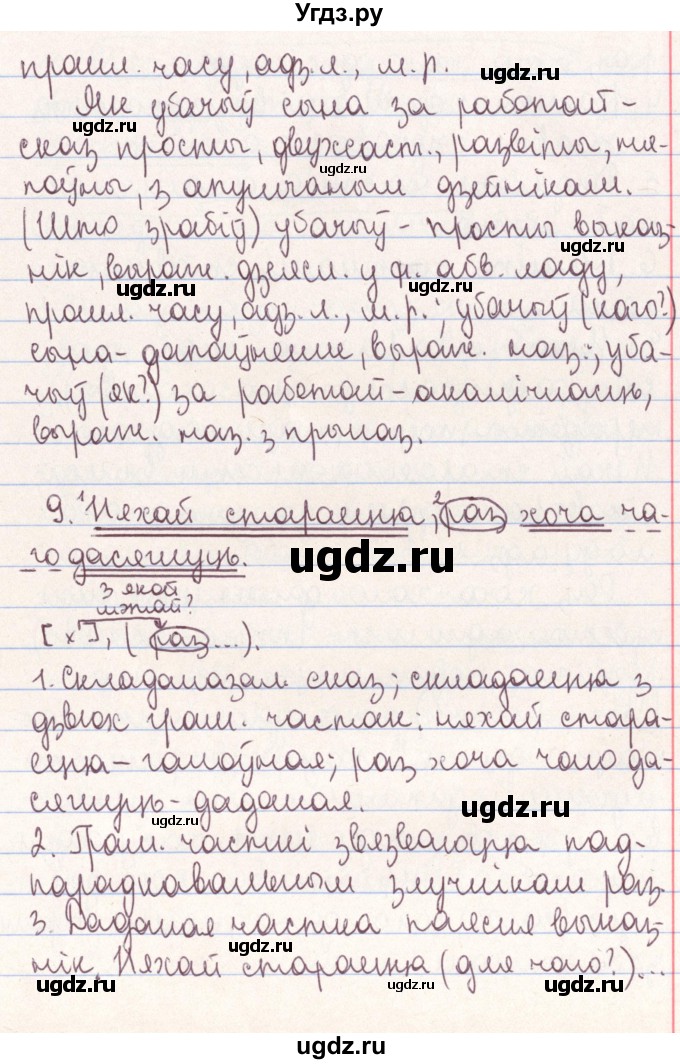 Угдз.ру
прошл. часу, адз.л., м.р.
ugdz.ru
Як убачыў сына за работай -
ugdz.ru
сказ просты, двухсаст., развіты, ня-
ugdz.ru
поўны, з апушчаным дзейнікам.
(Што зрабіў) убачыў - просты выказ-
ugdz.ru
нік, выраж. дзеясл. у ф. абв. ладу,
ugdz.ru
прошл. часу, адз.л., м.р.; убачыў (каго?)
сына - дапаўненне, выраж. наз.; уба-
чыў (як?) за работай - акалічнасць,
выраж. наз. з прыназ.
ugdz.ru
9. ¹Няхай стараецца, ²раз хоча ча-
го дасягнуць.
ugdz.ru
з якой
мэтай?
[ х ], ( раз ...).
1. Складаназал. сказ; складаецца з
дзвюх грам. частак: няхай стара-
ецца - галоўная; раз хоча чаго да-
сягнуць - даданая.
ugdz.ru
ugdz.ru
2. Грам. часткі звязваюцца пад-
парадкавальным злучнікам раз.
3. Даданая частка паясняе выказ-
ugdz.ru
нік. Няхай стараецца (для чаго?)...
ugdz.ru
ugdz.ru
ugdz.ru